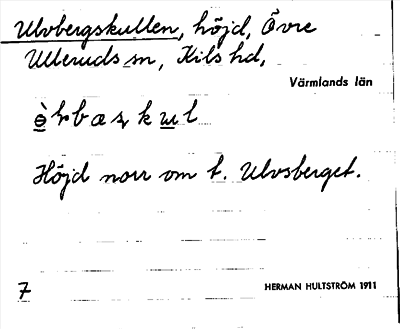 Ulvbergskullen, höjd, Övre
Ulleruds sn, Kils hd,
Värmlands län
Höjd norr om t. Ulvsberget.
7
HERMAN HULTSTRÖM 1911